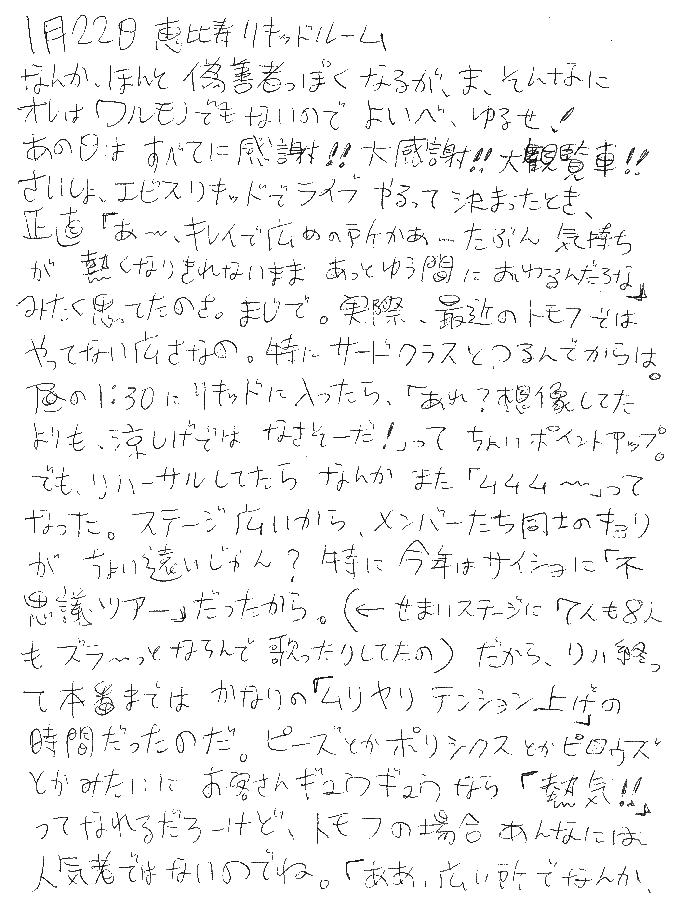 1月22日 恵比寿リキッドルーム
なんか、ほんと 偽善者っぽく なるが、ま、そんなに
オレは「ワルモノ」でもないので よいべ、ゆるせ!
あの日は すべてに感謝!! 大感謝!! 大観覧車!!
さいしょ、エビスリキッドでライブ やるって 決まったとき、
正直「あ〜、キレイで広めの所かあーたぶん 気持ち
が 熱くなりきれないまま あっとゆう間に おわるんだろな」
みたく思ってたのさ。まじで。実際、最近のトモフでは
やってない広さなの。特に サードクラスとつるんでからは。
昼の1:30にリキッドに入ったら、「あれ?想像してた
よりも、涼しげでは なさそーだ!」って ちょいポイントアップ。
でも、リハーサルしてたら なんか また「ムムム〜」って
なった。ステージ広いから、メンバーたち同士のきょり
が ちょい遠いじかん? 特に 今年はサイショに「不
思議ツアー」だったから。(← せまいステージに 7人も8人
も ズラ〜っと ならんで 歌ったりしてたの) だから、リハ終っ
て本番までは かなりの「ムリヤリ テンション上げ」の
時間だったのだ。ピーズとかポリシックスとかピロウズ
とかみたいに お客さんギュウギュウ なら 「熱気!!」
ってなれるだろーけど、トモフの場合 あんなには
人気者ではないのでね。「ああ、広い所でなんか、